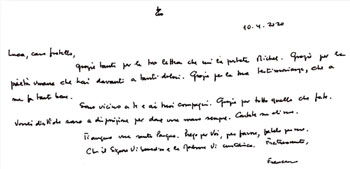 10.4.2020
Luca, caro fratello,
Grazie tante per la tua lettera che mi ha portato Michel. Grazie per la
pietà umana che hai davanti a tanti dolori. Grazie per la tua testimonianza, che a
me fa tanto bene.
Sono vicino a te e ai tuoi compagni. Grazie per tutto quello che fate.
Vorrei dirti che sono a disposizione per dare una mano sempre. Contate su di me.
Ti auguro una santa Pasqua. Prego per voi, per favore, fatelo per me.
Che il Signore Vi benedica e la Madonna Vi custodisca. Fraternamente,
Francesco